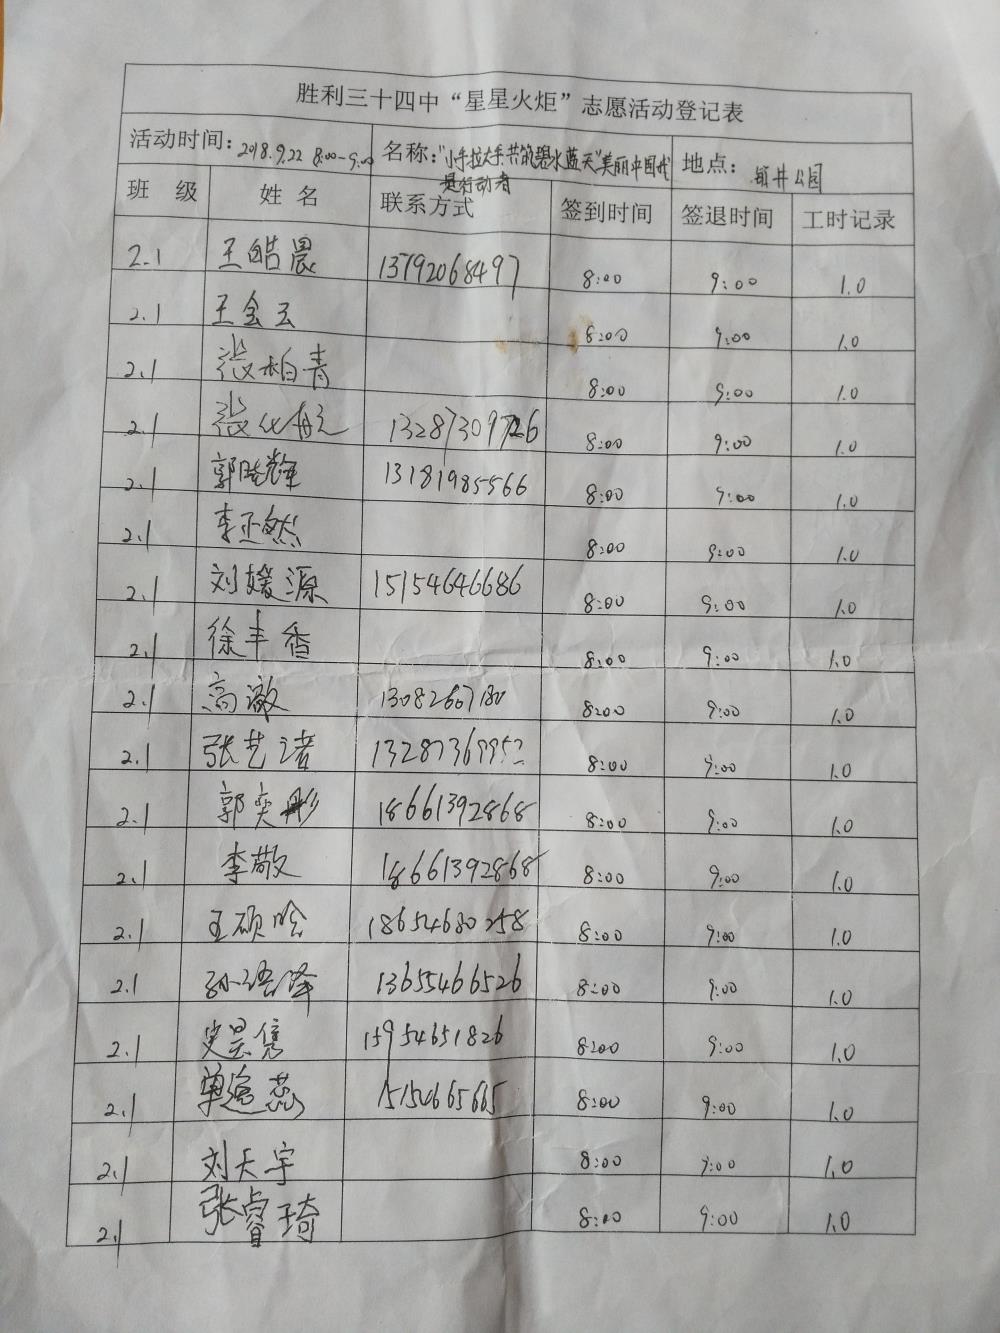 胜利三十四中“星星火炬”志愿活动登记表
活动时间: 2018.9.22 8:00-9:00 名称:“小手拉大手共筑碧水蓝天”美丽中国我 地点:
是行动者 公园
班 级 姓 名 联系方式 签到时间 签退时间 工时记录
2.1 王皓晨 13792068497 8:00 9:00 1.0
2.1 王会云 8:00 9:00 1.0
2.1 张柏青 8:00 9:00 1.0
2.1 张化 8:00 9:00 1.0
2.1 郭晓辉 13181985566 8:00 9:00 1.0
2.1 李正然 8:00 9:00 1.0
2.1 刘媛源 15154646686 8:00 9:00 1.0
2.1 徐丰香 8:00 9:00 1.0
2.1 高 8:00 9:00 1.0
2.1 张艺诸 8:00 9:00 1.0
2.1 郭奕彤 18661392868 8:00 9:00 1.0
2.1 李敬 18661392868 8:00 9:00 1.0
2.1 王硕晗 18654680258 8:00 9:00 1.0
2.1 孙语泽 13655466526 8:00 9:00 1.0
2.1 史昙隽 15954651826 8:00 9:00 1.0
2.1 单 蕊 8:00 9:00 1.0
2.1 刘天宇 8:00 9:00 1.0
2.1 张睿琦 8:00 9:00 1.0